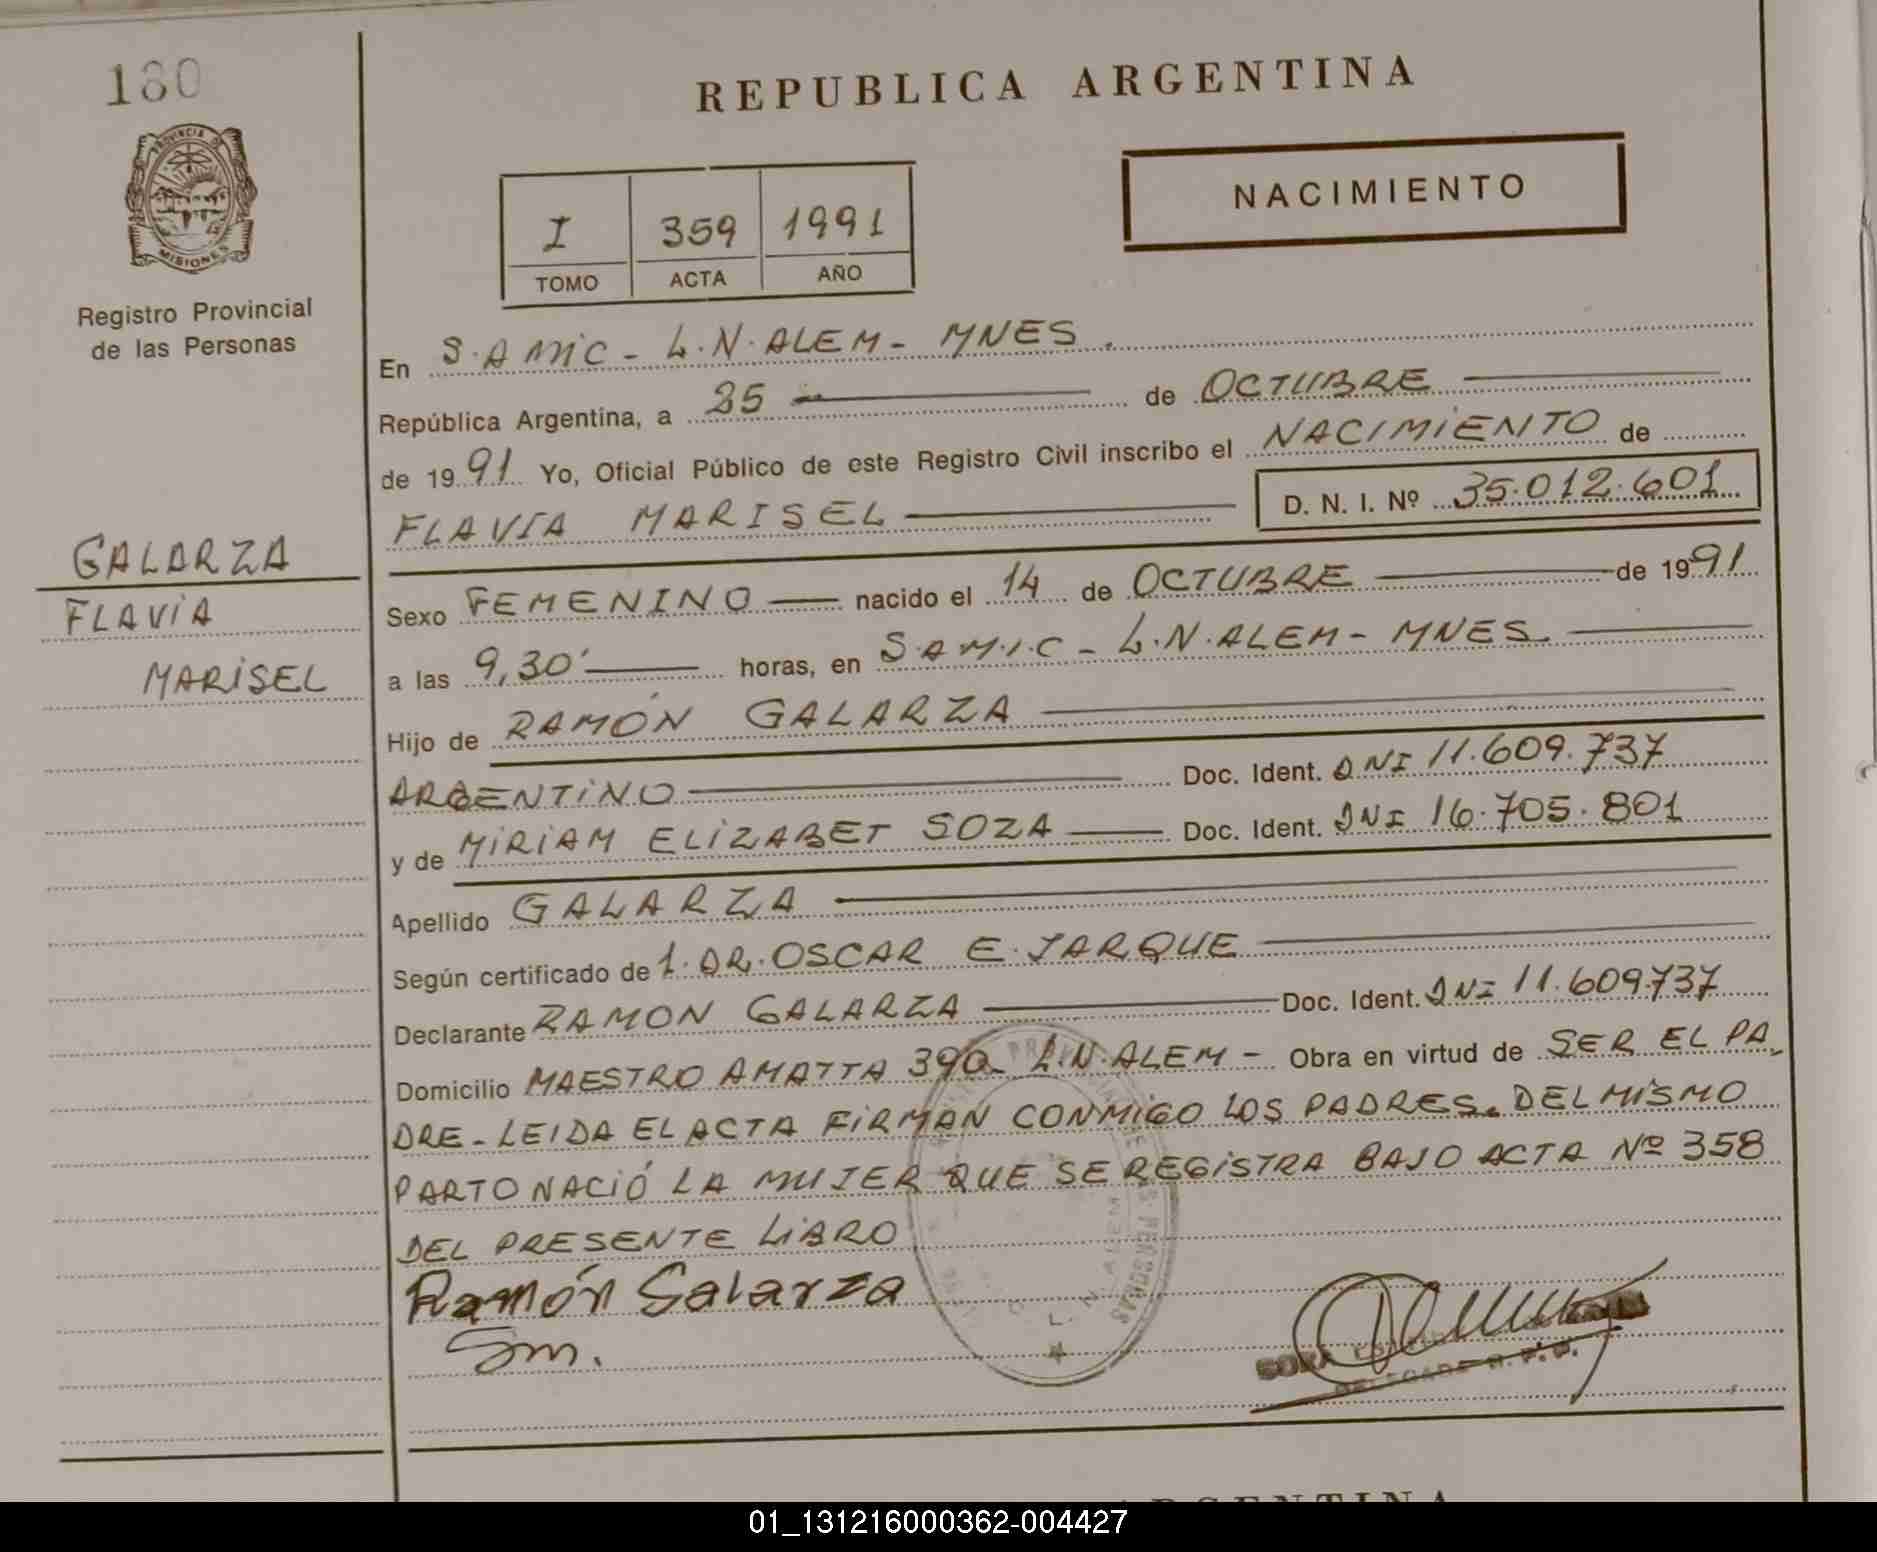 180
REPUBLICA ARGENTINA
PROVINCIA DE
MISIONES
NACIMIENTO
I 359 1991
TOMO ACTA AÑO
Registro Provincial
de las Personas
En S.AMIC - L.N.ALEM - MNES.
República Argentina, a 25 de OCTUBRE
de 1991 Yo, Oficial Público de este Registro Civil inscribo el NACIMIENTO de
FLAVIA MARISEL D. N. I. Nº 35.012.601
GALARZA
FLAVIA
MARISEL
Sexo FEMENINO nacido el 14 de OCTUBRE de 1991
a las 9,30' horas, en S.A.M.I.C - L.N.ALEM - MNES.
Hijo de RAMÓN GALARZA
ARGENTINO Doc. Ident. DNI 11.609.737
y de MIRIAM ELIZABET SOZA Doc. Ident. DNI 16.705.801
Apellido GALARZA
Según certificado de 1.DR.OSCAR E.JARQUE
Declarante RAMON GALARZA Doc. Ident. DNI 11.609737
Domicilio MAESTRO AMATTA 390 L.N.ALEM - Obra en virtud de SER EL PA_
DRE - LEIDA EL ACTA FIRMAN CONMIGO LOS PADRES. DEL MISMO
PARTO NACIÓ LA MUJER QUE SE REGISTRA BAJO ACTA Nº 358
DEL PRESENTE LIBRO
Ramón Galarza
Sm.
L. N. ALEM
DELEGADA R. P. P.
ARGENTINA
01_131216000362-004427